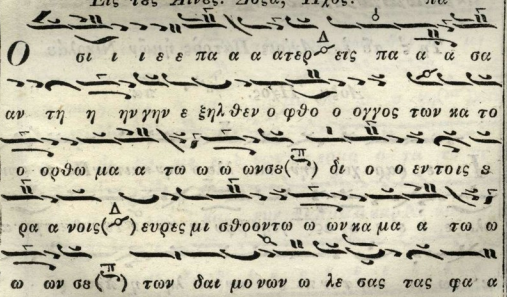 Εις τους Αινους. Δοξα, Ηχος. πα
Ο σι ι ι ε ε πα α α ατερ Δ εις πα α α σα
αν τη η ην γην ε ξηλ θεν ο φθο ο ογγος των κα το
ο ορθω μα α τω ω ω ωνσȣ(π) δι ο ο εν τοις ȣ
ρα α νοις(Δ) ευρες μι σθοοντω ω ων κα μα α τω ω
ω ων σȣ(π) των δαι μο νων ω λε σας τας φα α